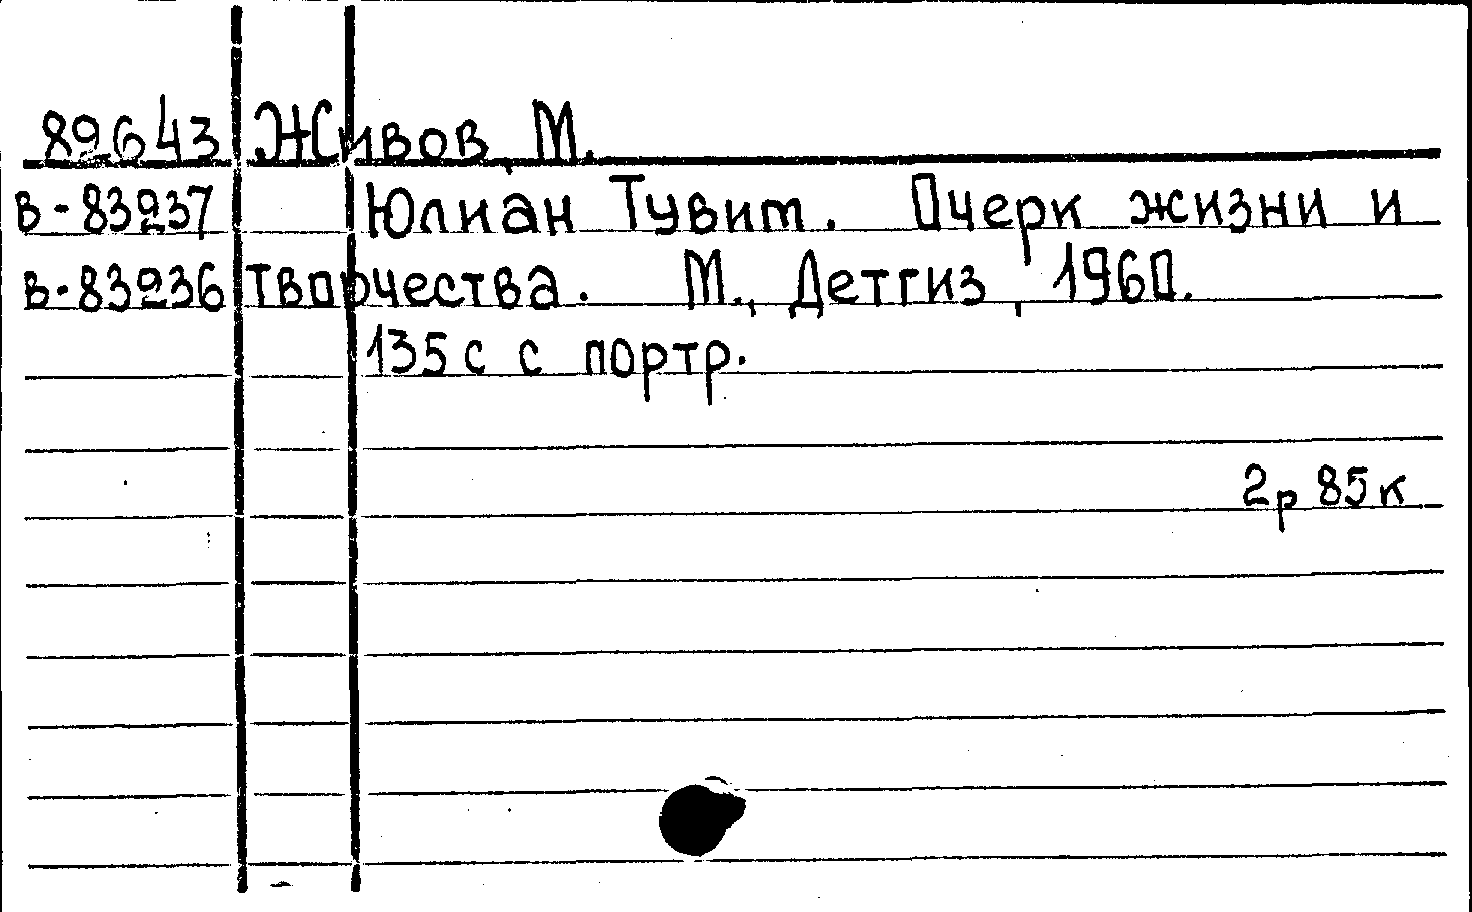 89643 Живов, М.
в-83237 Юлиан Тувит. Очерк жизни и
в-83236 творчества. М., Детгиз, 1960.
135 с с портр.
2р 85к